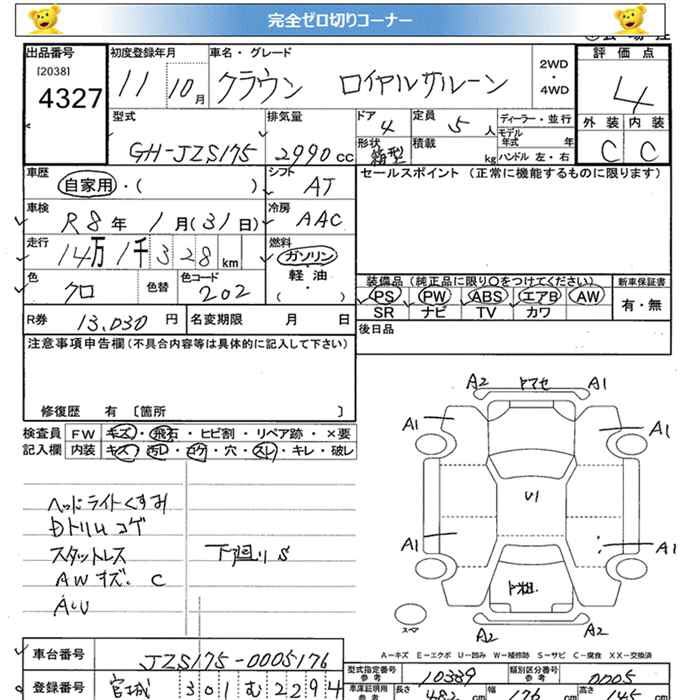 完全ゼロ切りコーナー
出品番号 初度登録年月 車名・グレード 2WD・4WD 評価点
[2038]
4327 11 10月 クラウン ロイヤルサルーン 4
型式 排気量 ドア 4 定員 5人 ディーラー・並行 外装 内装
GH-JZS175 2990cc 形状 箱型 積載 kg モデル年式 年 ハンドル 左・右 C C
車歴 自家用・( ) シフト AT セールスポイント (正常に機能するものに限ります)
車検 R8年 1月(31日) 冷房 AAC
走行 14万1千328km 燃料 ガソリン 軽油 ( ・ )
色 クロ 色替 色コード 202 装備品 (純正品に限り〇をつけてください) 新車保証書
PS PW ABS エアB AW 有・無
SR ナビ TV カワ
R券 13,030円 名変期限 月 日 後日品
注意事項申告欄(不具合内容等は具体的に記入して下さい)
修復歴 有 〔箇所 〕
検査員 FW キズ・飛石・ヒビ割・リペア跡・×要
記入欄 内装 キズ・汚レ・コゲ・穴・スレ・キレ・破レ
A2 トマセ A1
A1 A1
U1
A1 A1
ヘッドライトくすみ
Dトリムコゲ
スタットレス 下廻りS
AWキズ. C
スペア A2 A2
A=キズ E=エクボ U=凹み W=補修跡 S=サビ C=腐食 XX=交換済
車台番号 JZS175-0005176 型式指定番号 参考 10339 類別区分番号 参考 0005
登録番号 宮城 301 む 2294 車庫証明用 参考 長さ 482cm 幅 176cm 高さ 145cm